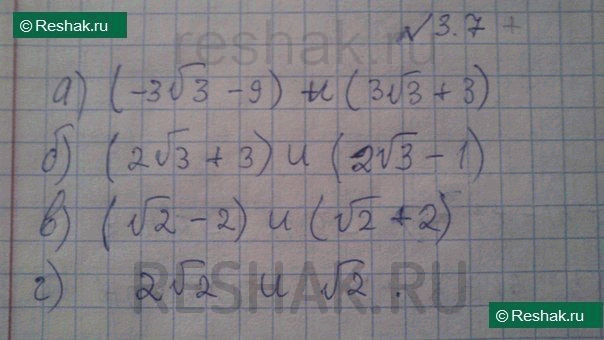 Reshak.ru
reshak.ru
№ 3.7 +
а) (-3√3 - 9) и (3√3 + 3)
б) (2√3 + 3) и (2√3 - 1)
в) (√2 - 2) и (√2 + 2)
RESHAK.RU
г) 2√2 и √2.
Reshak.ru